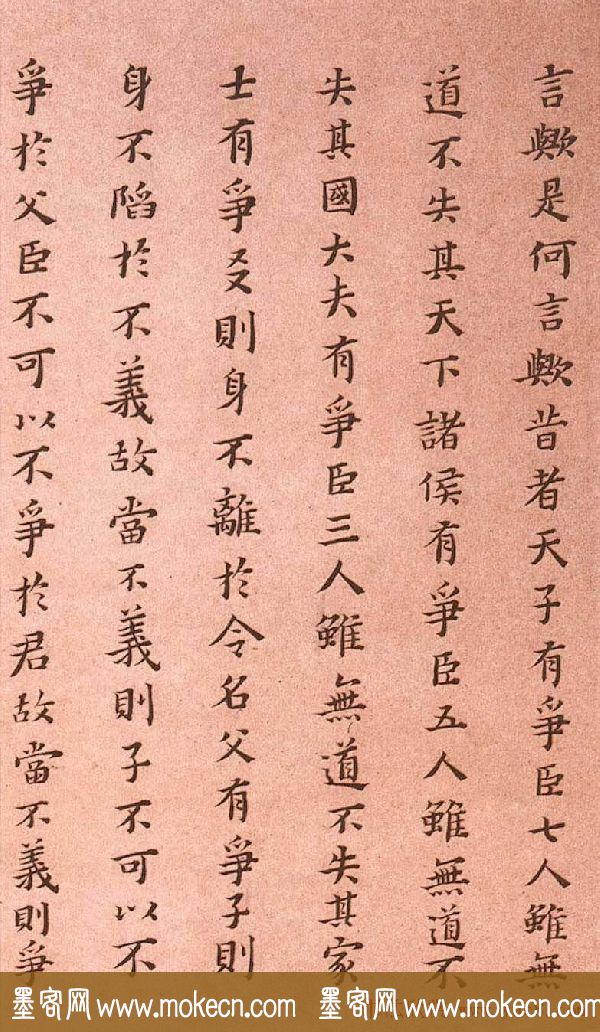 言歟是何言歟昔者天子有爭臣七人雖無
道不失其天下諸侯有爭臣五人雖無道不
失其國大夫有爭臣三人雖無道不失其家
士有爭友則身不離於令名父有爭子則
身不陷於不義故當不義則子不可以不
爭於父臣不可以不爭於君故當不義則爭
墨客网 www.mokecn.com 墨客网 www.mokecn.com